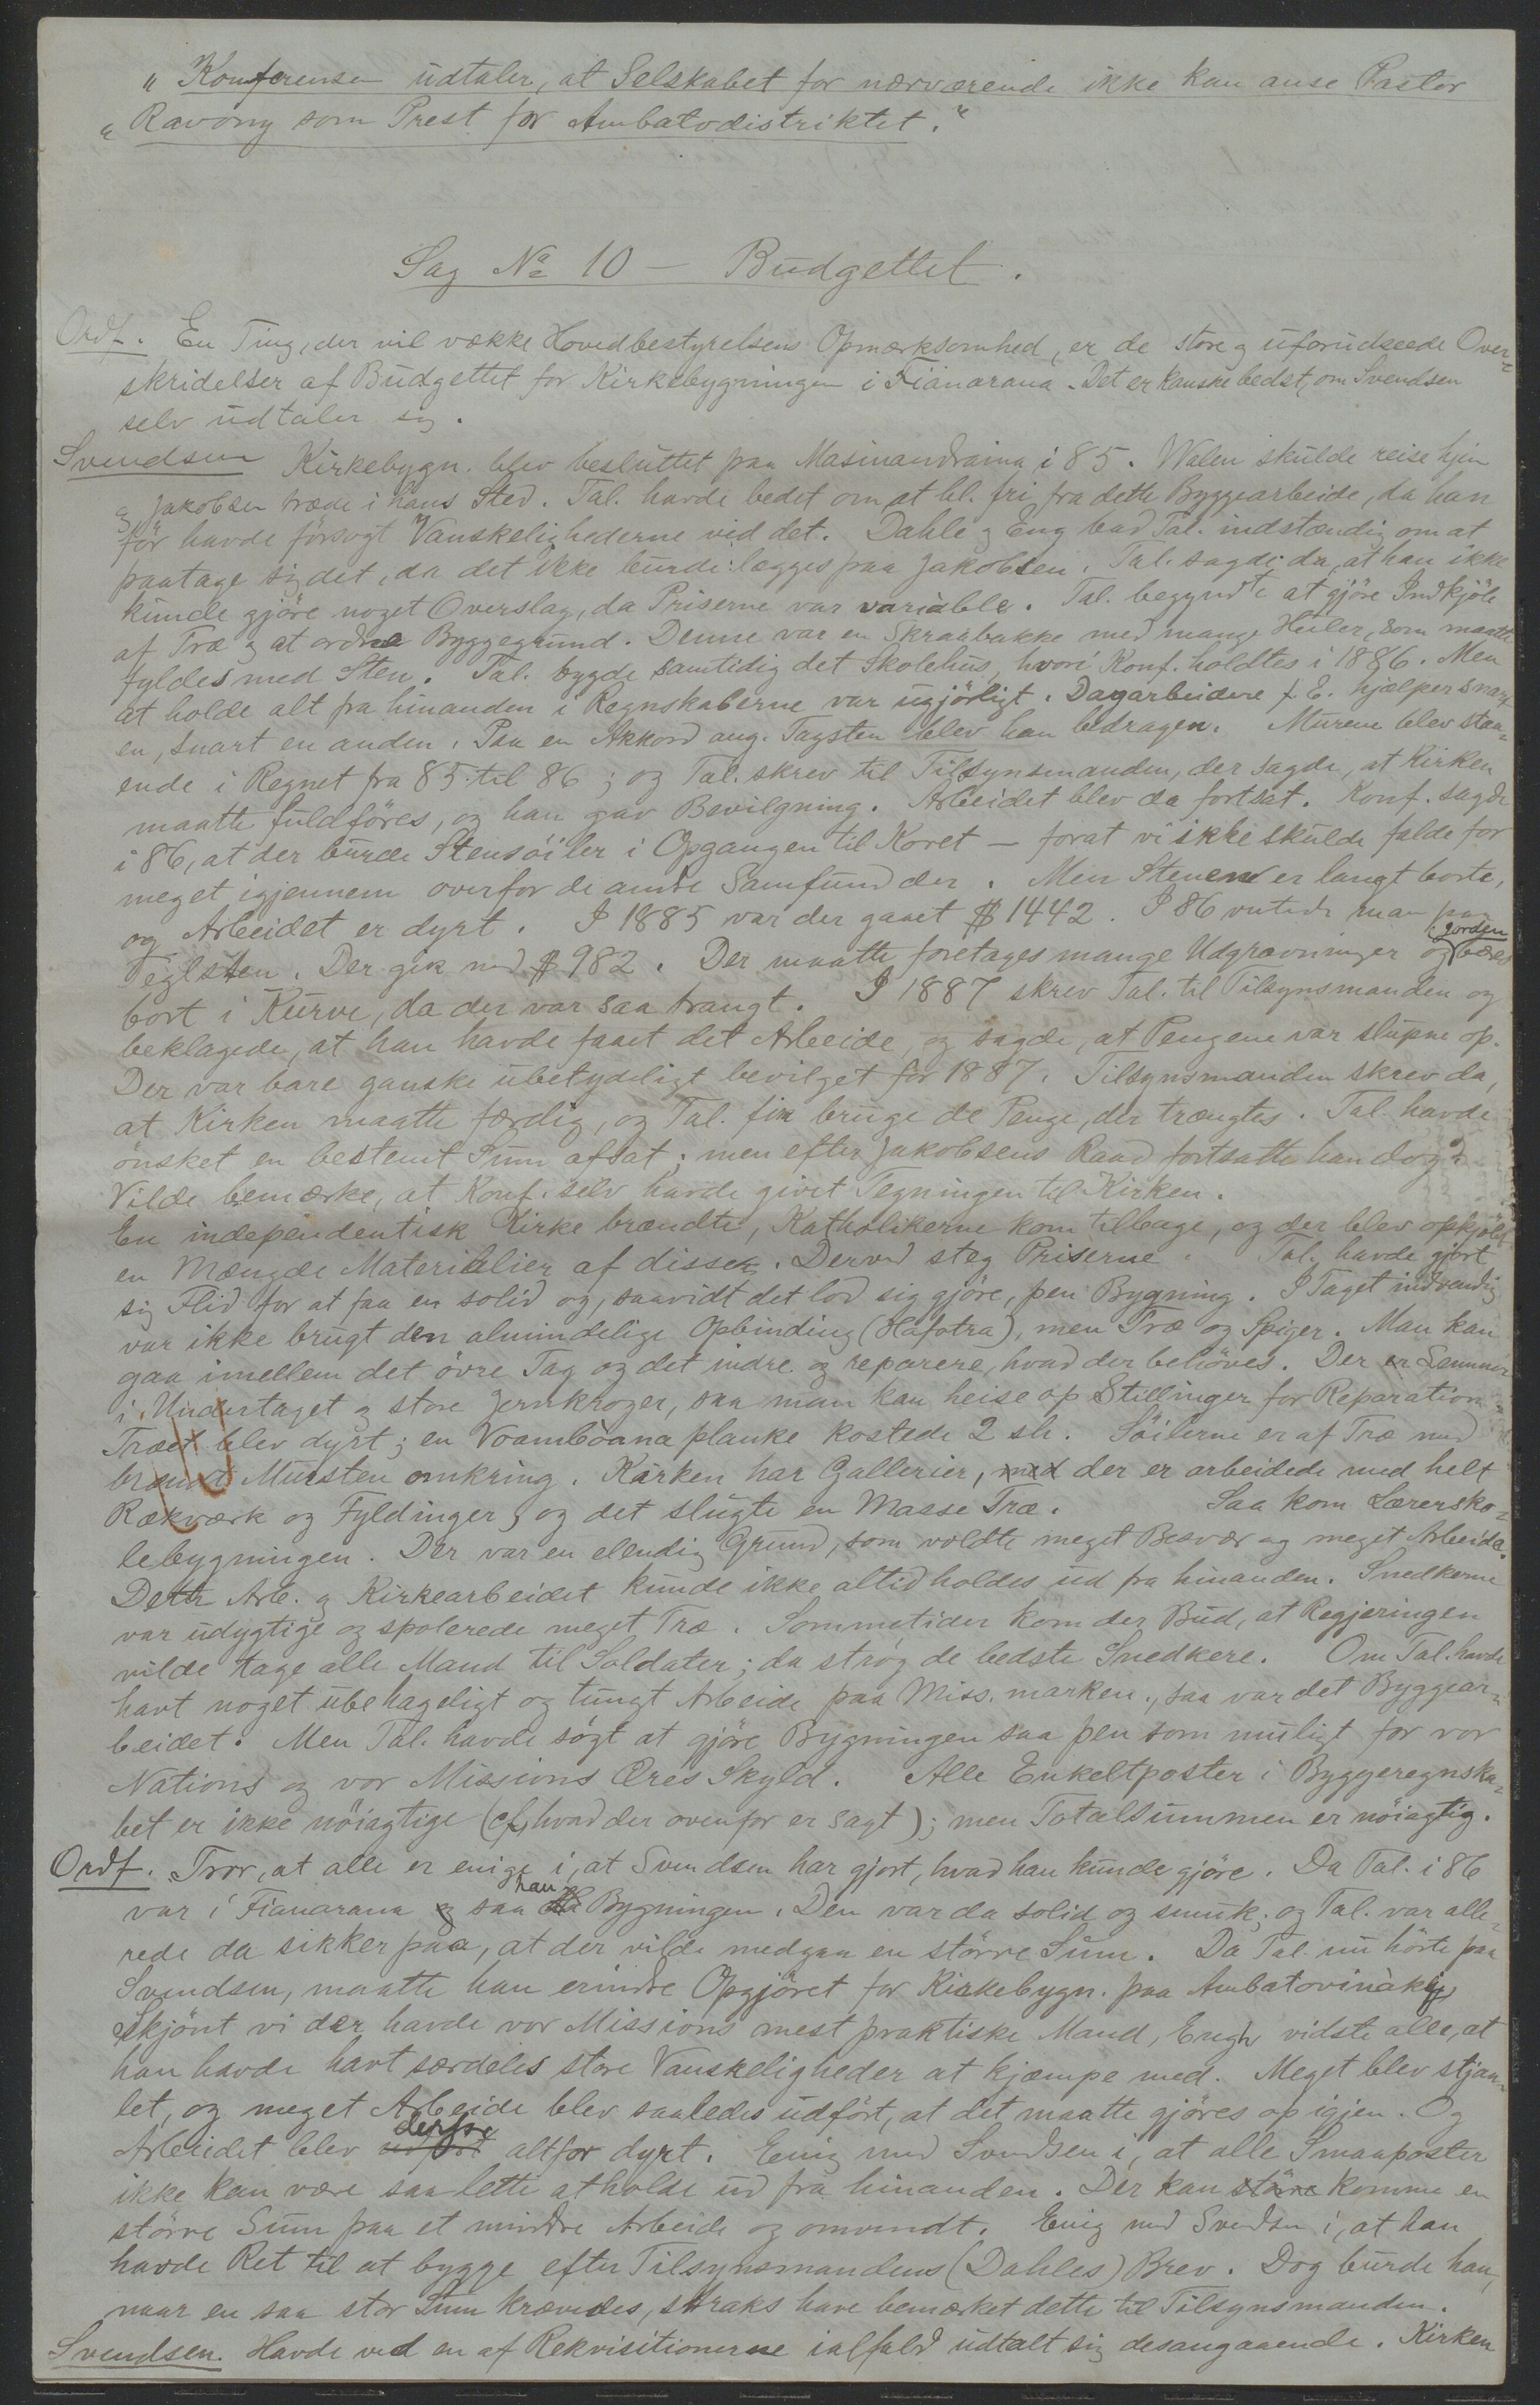 "Konferensen udtaler, at Selskabet for nærværende ikke kan anse Pastor
"Ravony som Prest for Ambatodistriktet."
Sag No 10 — Budgettet.
Ordf. En Ting, der vil vække Hovedbestyrelsens Opmærksomhed, er de store g uforudseede Over-
skridelser af Budgettet for Kirkebygningen i Fianarana. Det er kanske bedst, om Svendsen
selv udtaler sig.
Svendsen Kirkebygn. blev besluttet paa Masinandraina i 85. Walen skulde reise hjem
g Jakobsen træde i hans Sted. Tal. havde bedet om at bl. fri fra dette Byggearbeide, da han
før havde forsøgt Vanskelighederne ved det. Dahle g Eng bad Tal. indstændig om at
paatage sig det, da det ikke burde lægges paa Jakobsen. Tal. sagde da, at han ikke
kunde gjöre noget Overslag, da Priserne var variable. Tal. begyndte at gjöre Indkjöb
af Træ g at ordne Byggegrund. Denne var en Skraabakke med mange Huler, som maatte
fyldes med Sten. Tal. bygde samtidig det Skolehus, hvori Konf. holdtes i 1886. Men
at holde alt fra hinanden i Regnskaberne var ugjörligt. Dagarbeidere f. E. hjælper snart
en, snart en anden. Paa en Akkord ang. Tagsten blev han bedragen. Murene blev staa-
ende i Regnet fra 85 til 86; og Tal. skrev til Tilsynsmanden, der sagde, at Kirken
maatte fuldföres, og han gav Bevilgning. Arbeidet blev da fortsat. Konf. sagde
i 86, at der burde Stensöiler i Opgangen til Koret — forat vi ikke skulde falde for
meget igjennem overfor de andre Samfund der. Men Stenen er langt borte,
og Arbeidet er dyrt. I 1885 var der gaaet $ 1442. I 86 ventede man paa
Teglsten. Der gik med $ 982. Der maatte foretages mange Udgravninger og Jorden bæres
bort i Kurve, da der var saa trangt. I 1887 skrev Tal. til Tilsynsmanden og
beklagede, at han havde faaet det Arbeide, og sagde, at Pengene var slupne op.
Der var bare ganske ubetydeligt bevilget for 1887. Tilsynsmanden skrev da,
at Kirken maatte færdig, og Tal. fik bruge de Penge, der trængtes. Tal. havde
önsket en bestemt Sum afsat; men efter Jakobsens Raad fortsatte han dog.
Vilde bemærke, at Konf. selv havde givet Tegningen til Kirken.
En independentisk Kirke brændte, Katholikerne kom tilbage, og der blev opkjöbt
en Mængde Materialier af disse. Derved steg Priserne. Tal. havde gjort
sig Flid for at faa en solid og, saavidt det lod sig gjöre, pen Bygning. I Taget indvendig
var ikke brugt den almindelige Opbinding (Hafotra), men Træ og Spiger. Man kan
gaa imellem det övre Tag og det indre g reparere, hvad der behöves. Der er Lemmer
i Undertaget g store Jernkroger, saa man kan heise op Stillinger for Reparation.
Træet blev dyrt; en Voamboana planke kostede 2 sh. Söilerne er af Træ med
brændt Mursten omkring. Kirken har Gallerier, med der er arbeidede med helt
Rækværk og Fyldinger, og det slugte en Masse Træ. Saa kom Lærersko-
lebygningen. Der var en elendig Grund, som voldte meget Besvær og meget Arbeide.
Dette Arb. g Kirkearbeidet kunde ikke altid holdes ud fra hinanden. Snedkerne
var udygtige og spolerede meget Træ. Sommetider kom der Bud, at Regjeringen
vilde tage alle Mand til Soldater; da ströy de bedste Snedkere. Om Tal. havde
havt noget ubehageligt og tungt Arbeide paa Miss. marken, saa var det Byggear-
beidet. Men Tal. havde sögt at gjöre Bygningen saa pen som muligt for vor
Nations og vor Missions Æres Skyld. Alle Enkeltposter i Byggeregnska-
bet er ikke nöiagtige (cf. hvad der ovenfor er sagt); men Totalsummen er nöiagtig.
Ordf. Tror, at alle er enige i, at Svendsen har gjort, hvad han kunde gjöre. Da Tal. i 86
var i Fianarana saa han Bygningen. Den var da solid og smuk, og Tal. var alle-
rede da sikker paa, at der vilde medgaa en större Sum. Da Tal. nu hörte paa
Svendsen, maatte han erindre Opgjöret for Kirkebygn. paa Ambatovinaky
Skjönt vi der havde vor Missions mest praktiske Mand, Engh vidste alle, at
han havde havt særdeles store Vanskeligheder at kjæmpe med. Meget blev stjaa-
let, og meget Arbeide blev saaledes udfört, at det maatte gjöres op igjen. Og
Arbeidet blev derfor altfor dyrt. Enig med Svendsen i, at alle Smaaposter
ikke kan være saa lette at holde ud fra hinanden. Der kan större komme en
större Sum paa et mindre Arbeide og omvendt. Enig med Svendsen i, at han
havde Ret til at bygge efter Tilsynsmandens (Dahles) Brev. Dog burde han,
naar en saa stor Sum krævedes, straks have bemærket dette til Tilsynsmanden.
Svendsen. Havde ved en af Rekvisitionerne ialfald udtalt sig desangaaende. Kirken